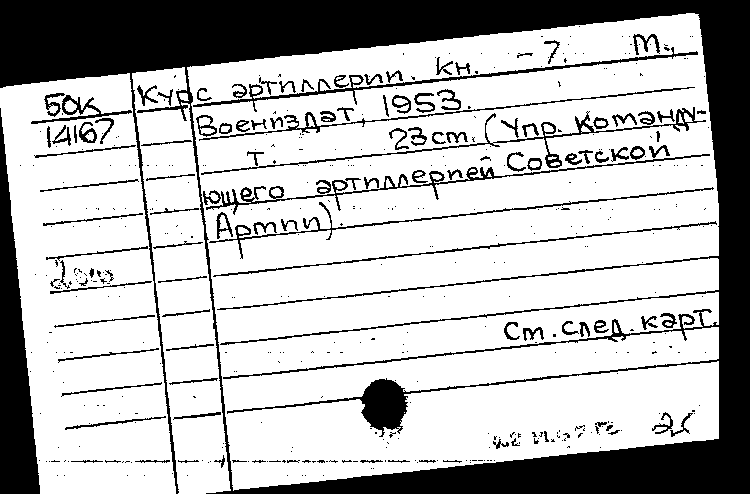 50к Курс артиллерии. Кн. - 7. М.,
14167 Воениздат, 1953.
т. 23 см. (Упр. команду-
ющего артиллерией Советской
Армии).
См. след. карт.